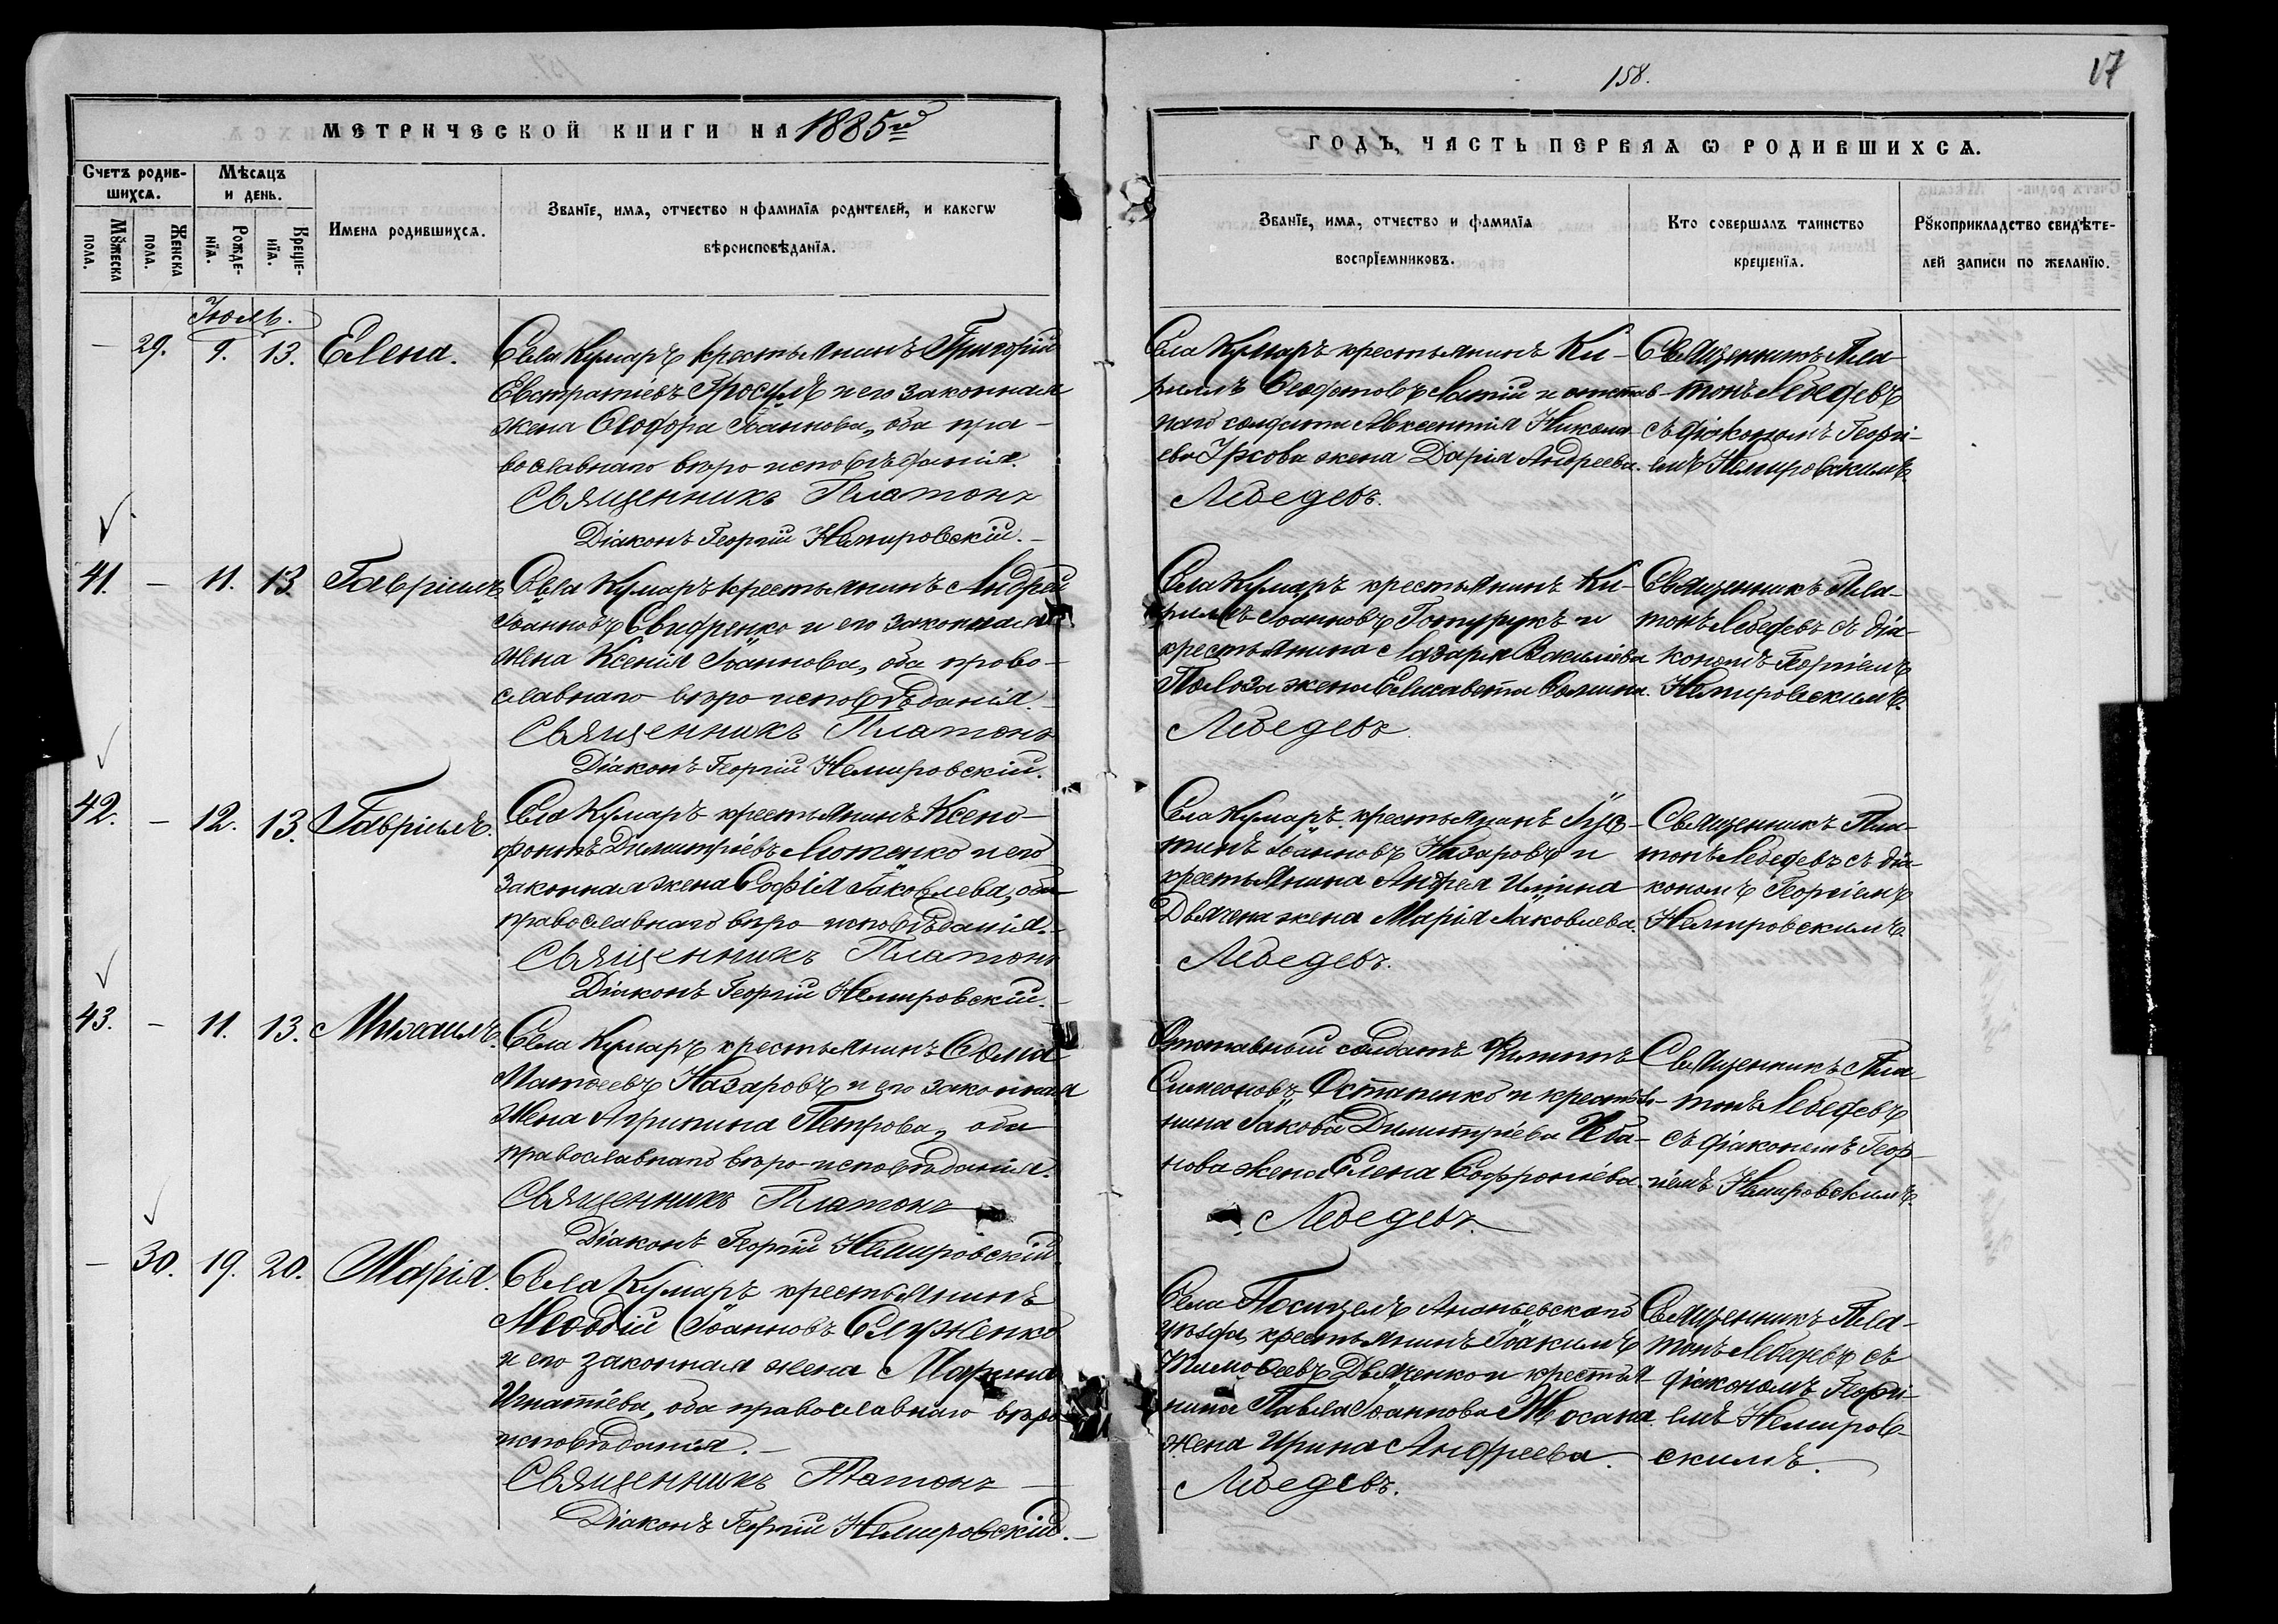 158.
17
МЕТРИЧЕСКОЙ КНИГИ НА 1885й
ГОДЪ, ЧАСТЬ ПЕРВАЯ Ѡ РОДИВШИХСѦ.
Счетъ родив-
шихсѧ.
Мѣсѧцъ
и день.
Мꙋжеска пола.
Женска пола.
Рожде-
нїѧ.
Креще-
нїѧ.
Имена родившихсѧ.
Званїе, имѧ, отчество и фамилїѧ родителей, и какогѡ
вѣроисповѣданїѧ.
Званїе, имѧ, отчество и фамилїѧ
воспрїемниковъ.
Кто совершалъ таинство
крещенїѧ.
Рꙋкоприкладство свидѣте-
лей записи по желанїю.
Іюль.
— 29. 9. 13. Елена.
Села Кумаръ крестьянинъ Григорій
Евстратіевъ Гросулъ и его законная
жена Ѳеодора Іоаннова, оба пра-
вославнаго вѣро исповѣданія.
Священникъ Платонъ
Діаконъ Георгій Немировскій.
Села Кумаръ крестьянинъ Ки-
риллъ Ѳеодотовъ и отстав-
наго солдата Авксентія Никола-
ева Урсова жена Дарія Андреева.
Лебедевъ.
Священникъ Пла-
тонъ Лебедевъ
съ діакономъ Георгі-
емъ Немировскимъ
41. — 11. 13. Гавріилъ
Села Кумаръ крестьянинъ Андрей
Іоанновъ Свидренко и его законная
жена Ксенія Іоаннова, оба право-
славнаго вѣро исповѣданія.
Священникъ Платонъ
Діаконъ Георгій Немировскій.
Села Кумаръ крестьянинъ Ки-
риллъ Іоанновъ и
крестьянина Лазаря Василіева
Полоза жена Елисавета Ѳомина.
Лебедевъ
Священникъ Пла-
тонъ Лебедевъ съ діа-
кономъ Георгіемъ
Немировскимъ.
42. — 12. 13. Гавріилъ.
Села Кумаръ крестьянинъ Ксено-
фонтъ Димитріевъ Лютенко и его
законная жена Софія Іаковлева, оба
православнаго вѣро исповѣданія.
Священникъ Платонъ
Діаконъ Георгій Немировскій.
Села Кумаръ крестьянинъ Іус-
тинъ Іоанновъ Назаровъ и
крестьянина Андрея Иліина
Двячена жена Марія Іаковлева.
Лебедевъ.
Священникъ Пла-
тонъ Лебедевъ съ діа-
кономъ Георгіемъ
Немировскимъ
43. — 11. 13. Михаилъ.
Села Кумаръ крестьянинъ Ѳома
Матѳеевъ Назаровъ и его законная
жена Агрипина Петрова, оба
православнаго вѣро-исповѣданія.
Священникъ Платонъ
Діаконъ Георгій Немировскій.
Отставный солдатъ Филиппъ
Симеоновъ Остапенко и крестья-
нина Іакова Димитріева Чеба-
нова жена Елена Софроніева.
Лебедевъ
Священникъ Пла-
тонъ Лебедевъ
съ діакономъ Геор-
гіемъ Немировскимъ.
— 30. 19. 20. Марія.
Села Кумаръ крестьянинъ
Меѳодій Іоанновъ
и его законная жена Марина
Игнатіева, оба православнаго вѣро
исповѣданія.
Священникъ Платонъ
Діаконъ Георгій Немировскій.
Села Посицелъ Ананьевскаго
уѣзда, крестьянинъ Іоакимъ
Тимоѳеевъ Двяченко и крестья-
нина Павла Іоаннова Жосана
жена Ирина Андреева.
Лебедевъ.
Священникъ Пла-
тонъ Лебедевъ съ
діакономъ Георгі-
емъ Немиров-
скимъ.